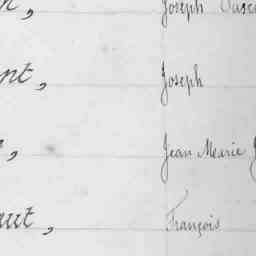 n, Joseph
nt, Joseph
, Jean Marie
aut, François